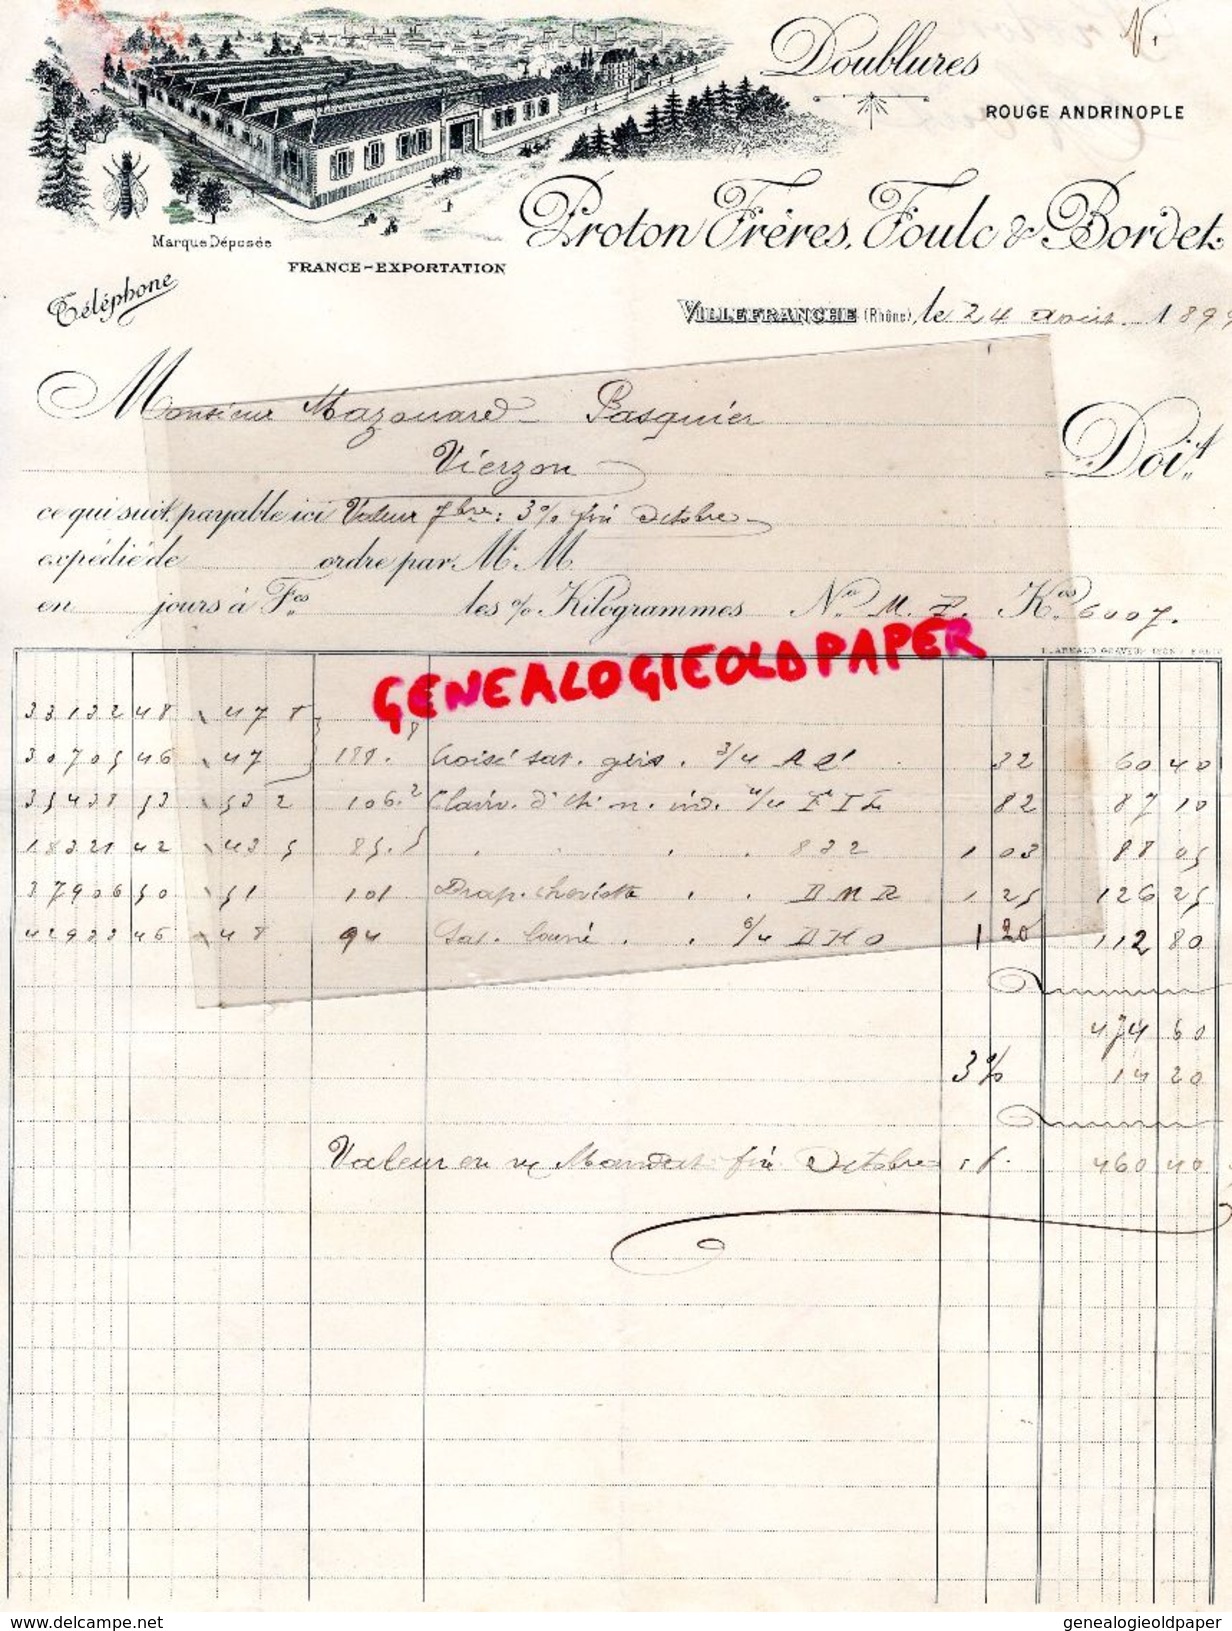 Doublures
ROUGE ANDRINOPLE
Proton Frères, Foulc & Bordet
Marque Déposée
FRANCE-EXPORTATION
Téléphone
VILLEFRANCHE (Rhône), le 24 août 1899
Monsieur Mazouard - Pasquier
Vierzon
Doit
ce qui suit, payable ici Valeur 7bre: 3% fin Octobre
expédié de ordre par M. M.
en jours à Fcs les % Kilogrammes No M. P. Kos 6007.
GENEALOGIEOLDPAPER
33132 48 47 8
30705 46 47 188. 8 Croisé sat. gris. 3/4 32 60 40
35438 53 53 2 106. 2 4/4 82 87 10
18321 42 43 5 85. 5 832 1 03 88 05
37906 50 51 101 Drap. cheviotte BMR 1 25 126 25
42933 46 48 94 Sat. 6/4 BHO 1 20 112 80
474 60
3% 14 20
Valeur en Mandat fin Octobre f. 460 40
www.delcampe.net genealogieoldpaper